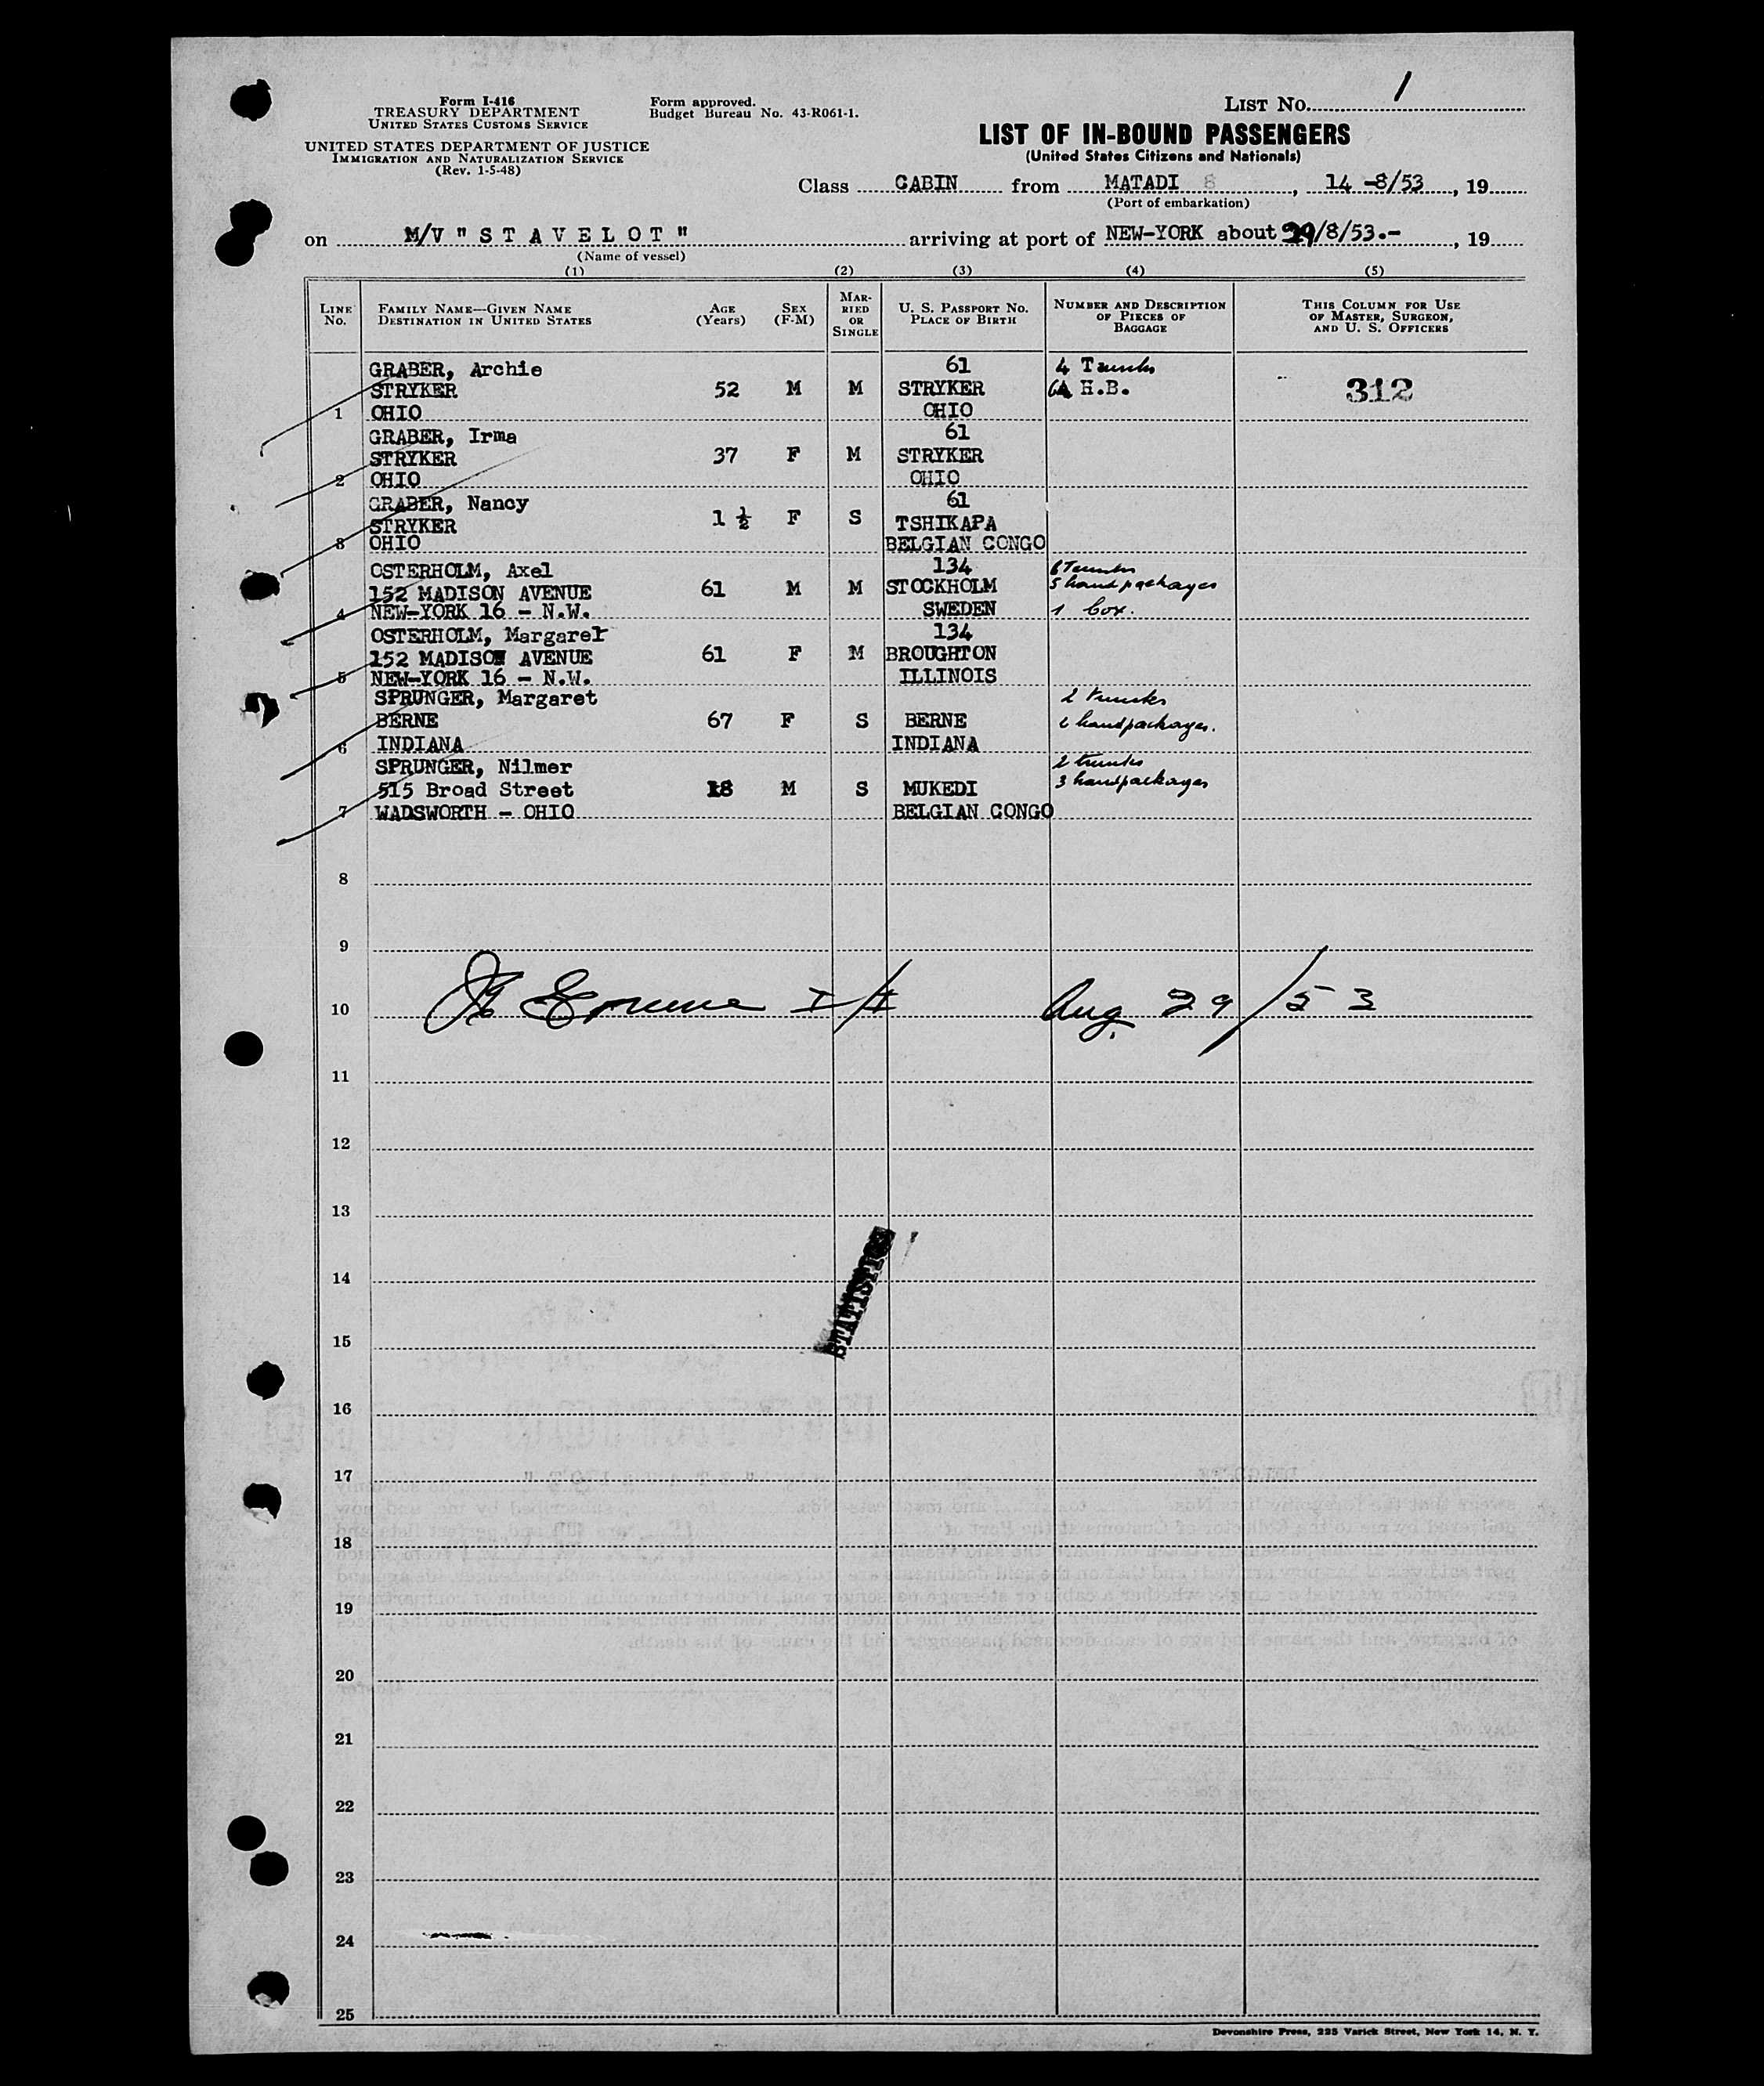 Form I-416
TREASURY DEPARTMENT
UNITED STATES CUSTOMS SERVICE
UNITED STATES DEPARTMENT OF JUSTICE
IMMIGRATION AND NATURALIZATION SERVICE
(Rev. 1-5-48)
Form approved.
Budget Bureau No. 43-R061-1.
LIST NO. 1
LIST OF IN-BOUND PASSENGERS
(United States Citizens and Nationals)
Class CABIN from MATADI , 14-8/53, 19
(Port of embarkation)
on M/V " S T A V E L O T " arriving at port of NEW-YORK about 29/8/53.-, 19
(Name of vessel)
(1) (2) (3) (4) (5)
LINE No. FAMILY NAME—GIVEN NAME DESTINATION IN UNITED STATES AGE (Years) SEX (F-M) MARRIED OR SINGLE U. S. PASSPORT NO. PLACE OF BIRTH NUMBER AND DESCRIPTION OF PIECES OF BAGGAGE THIS COLUMN FOR USE OF MASTER, SURGEON, AND U. S. OFFICERS
GRABER, Archie 61 4 Trunks
STRYKER 52 M M STRYKER H.B. 312
1 OHIO OHIO
GRABER, Irma 61
STRYKER 37 F M STRYKER
2 OHIO OHIO
GRABER, Nancy 61
STRYKER 1 ½ F S TSHIKAPA
3 OHIO BELGIAN CONGO
OSTERHOLM, Axel 134 6 Trunks
152 MADISON AVENUE 61 M M STOCKHOLM 5 hand packages
4 NEW-YORK 16 - N.W. SWEDEN 1 box.
OSTERHOLM, Margaret 134
152 MADISON AVENUE 61 F M BROUGHTON
5 NEW-YORK 16 - N.W. ILLINOIS
SPRUNGER, Margaret 2 trunks
BERNE 67 F S BERNE handpackages.
6 INDIANA INDIANA
SPRUNGER, Nilmer 2 trunks
515 Broad Street 18 M S MUKEDI 3 handpackages
7 WADSWORTH - OHIO BELGIAN CONGO
8
9
10 Aug. 29/53
11
12
13
14
STATISTICS
15
16
17
18
19
20
21
22
23
24
25
Devonshire Press, 225 Varick Street, New York 14, N. Y.